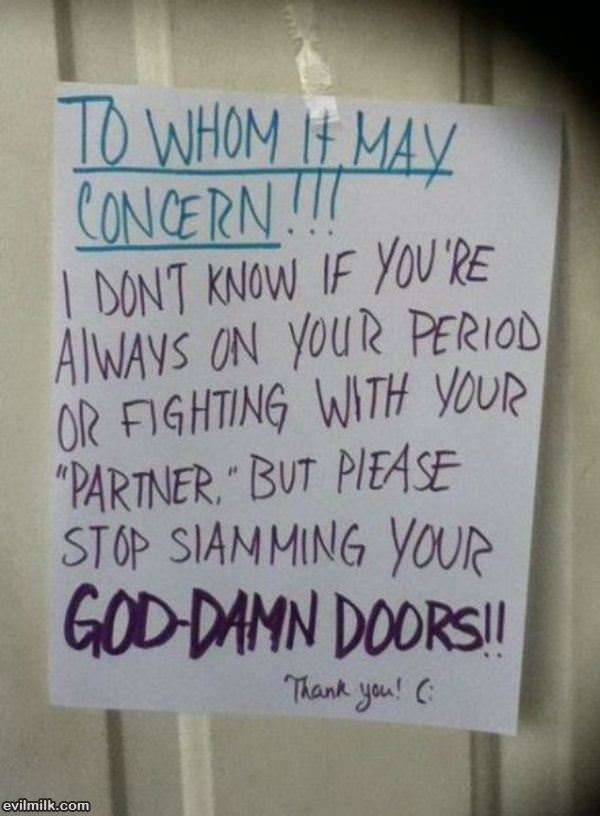 TO WHOM IT MAY
CONCERN!!!
I DON'T KNOW IF YOU'RE
AlWAYS ON YOUR PERIOD
OR FIGHTING WITH YOUR
"PARTNER," BUT PlEASE
STOP SlAMMING YOUR
GOD-DAMN DOORS!!
Thank you! (:
evilmilk.com